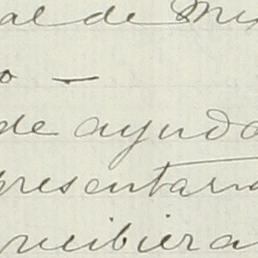 al de Mex
o —
de ayuda
presentara
recibiera